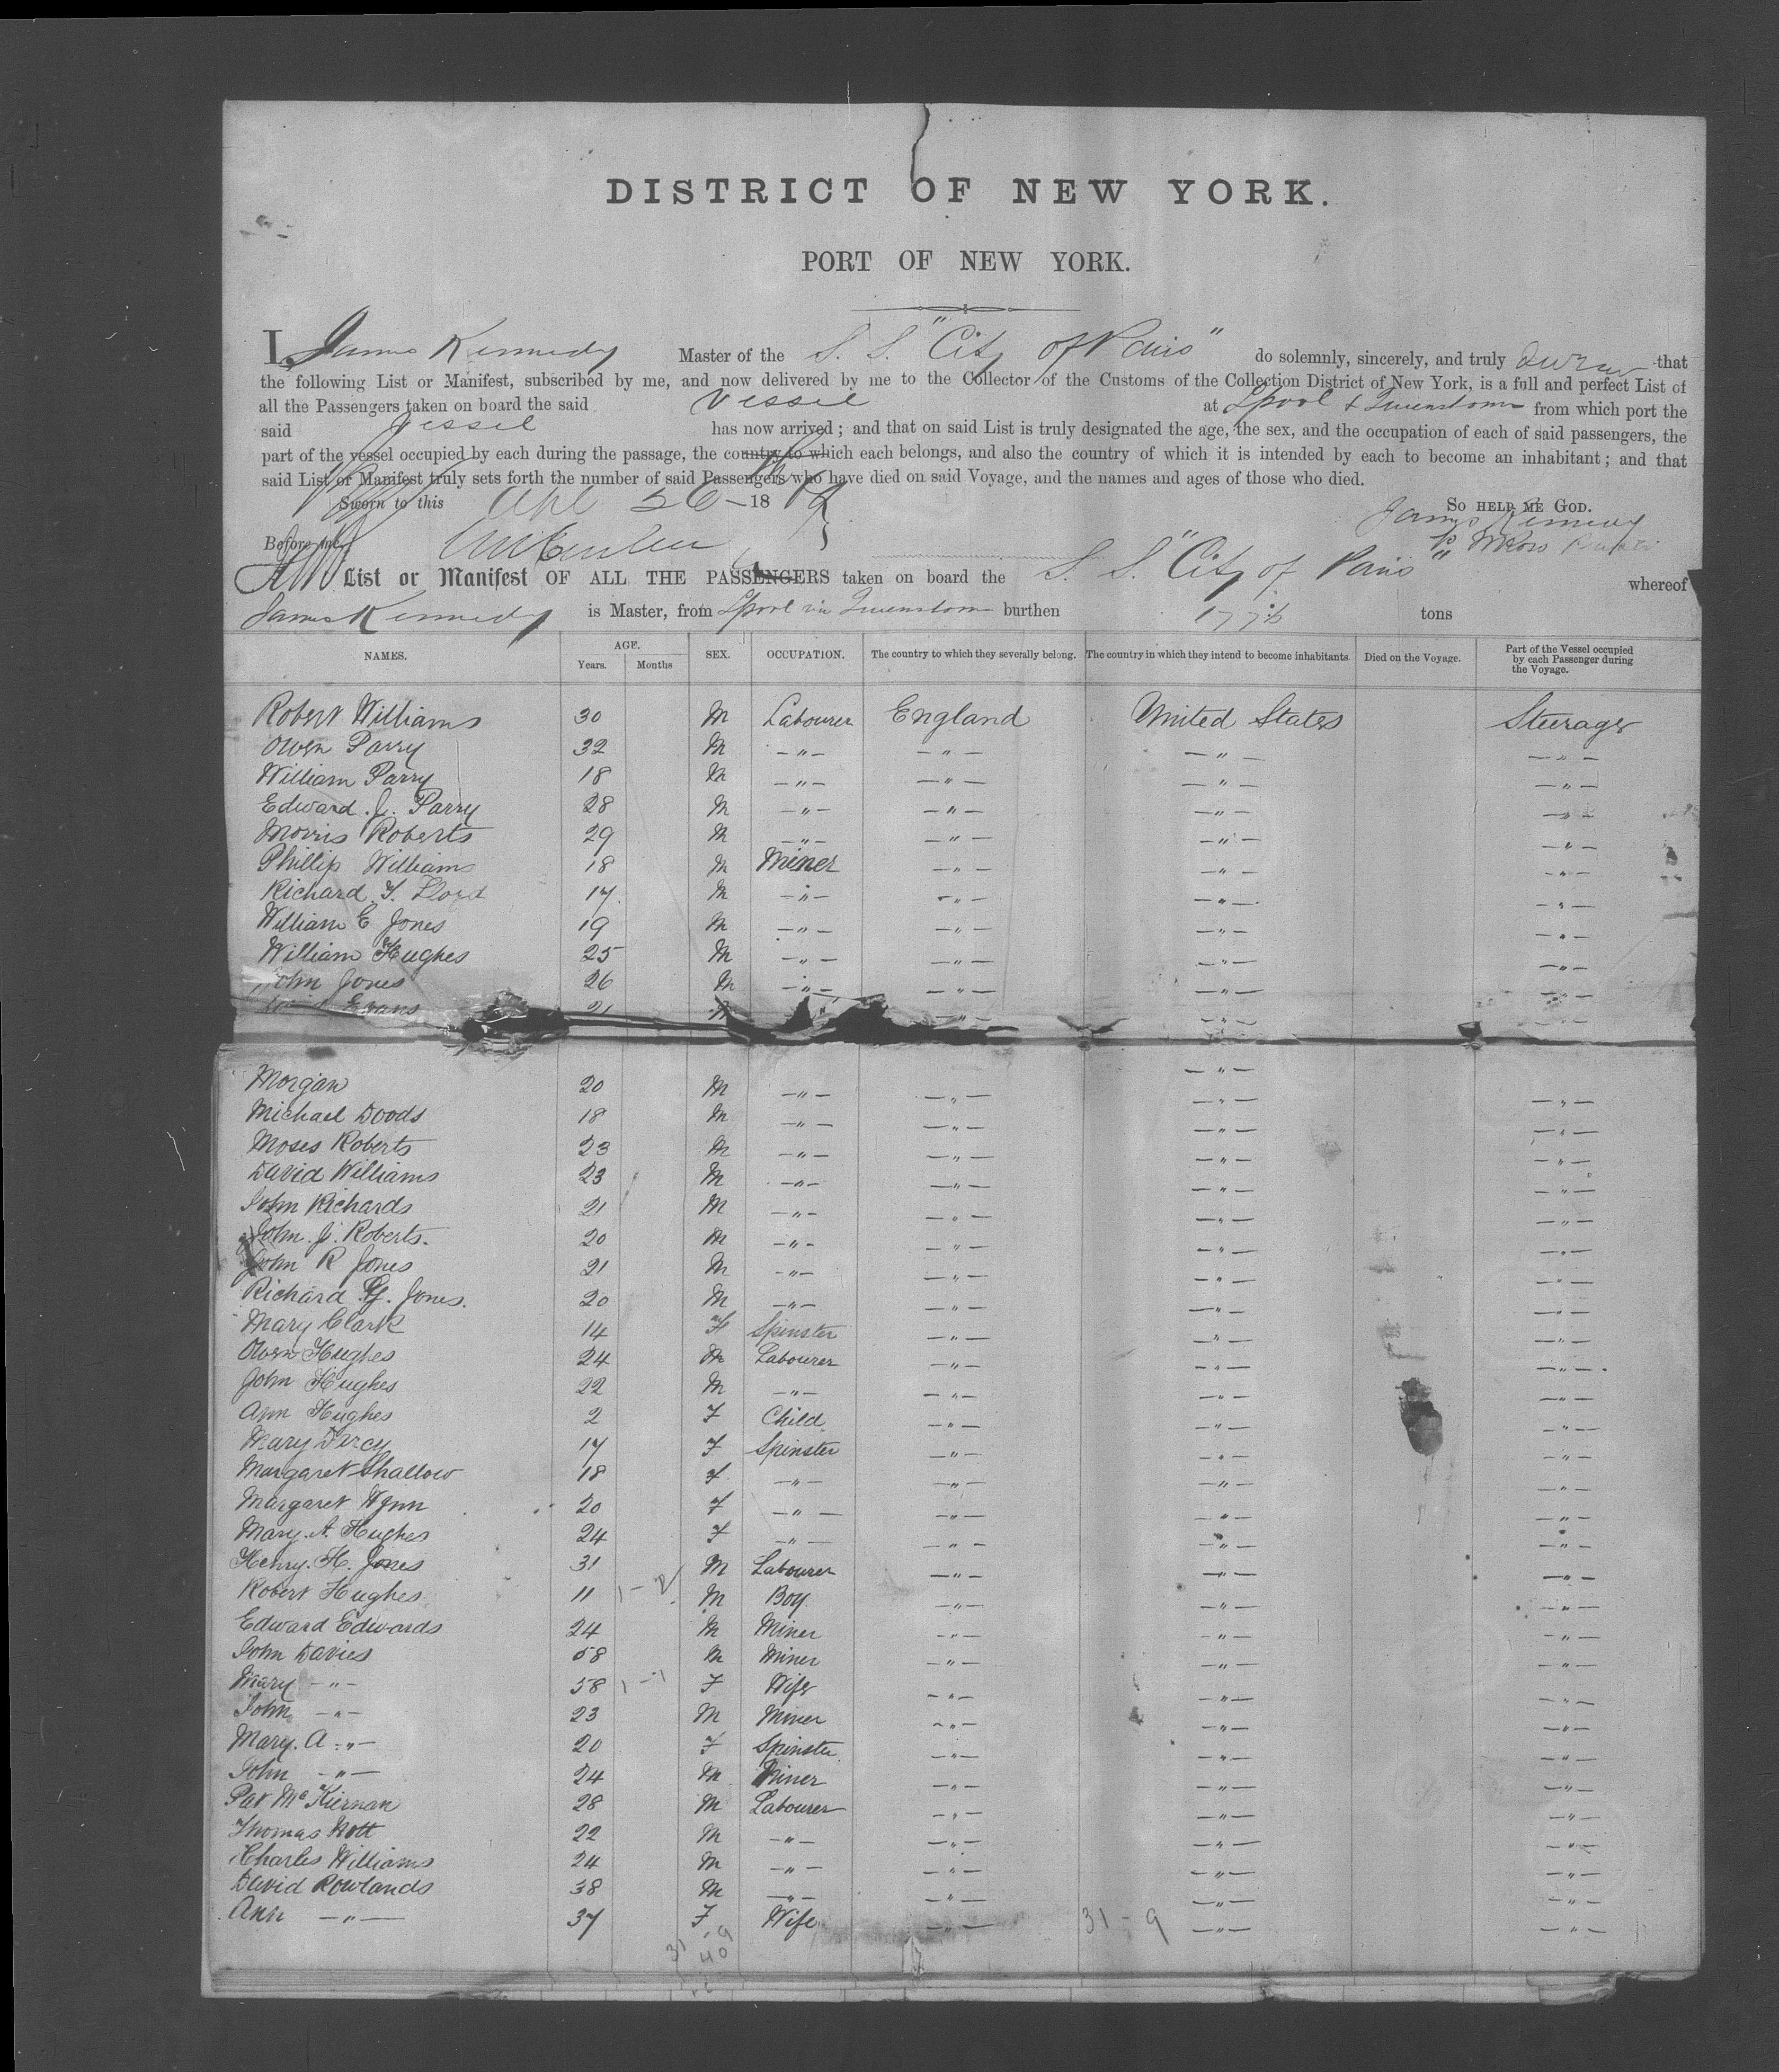 DISTRICT OF NEW YORK.
PORT OF NEW YORK.
I, James Kennedy Master of the S. S. "City of Paris" do solemnly, sincerely, and truly swear that
the following List or Manifest, subscribed by me, and now delivered by me to the Collector of the Customs of the Collection District of New York, is a full and perfect List of
all the Passengers taken on board the said Vessel at Lpool & Queenstown from which port the
said Vessel has now arrived; and that on said List is truly designated the age, the sex, and the occupation of each of said passengers, the
part of the vessel occupied by each during the passage, the country to which each belongs, and also the country of which it is intended by each to become an inhabitant; and that
said List or Manifest truly sets forth the number of said Passengers who have died on said Voyage, and the names and ages of those who died.
Sworn to this Apl 26 - 1869
SO HELP ME GOD.
James Kennedy
Before me,
List or Manifest OF ALL THE PASSENGERS taken on board the S. S. "City of Paris" whereof
James Kennedy is Master, from Lpool via Queenstown burthen 1776 tons
NAMES. AGE. Years. Months SEX. OCCUPATION. The country to which they severally belong. The country in which they intend to become inhabitants. Died on the Voyage. Part of the Vessel occupied by each Passenger during the Voyage.
Robert Williams 30 M Labourer England United States Steerage
Owen Parry 32 M -"- -"- -"- -"-
William Parry 18 M -"- -"- -"- -"-
Edward J. Parry 28 M -"- -"- -"- -"-
Morris Roberts 29 M -"- -"- -"- -"-
Phillip Williams 18 M Miner -"- -"- -"-
Richard T. Lloyd 17 M -"- -"- -"- -"-
William E Jones 19 M -"- -"- -"- -"-
William Hughes 25 M -"- -"- -"- -"-
John Jones 26 M -"- -"- -"- -"-
Evans 21 M -"- -"- -"- -"-
Morgan 20 M -"- -"- -"- -"-
Michael Doods 18 M -"- -"- -"- -"-
Moses Roberts 23 M -"- -"- -"- -"-
David Williams 23 M -"- -"- -"- -"-
John Richards 21 M -"- -"- -"- -"-
John. J. Roberts. 20 M -"- -"- -"- -"-
John R Jones 21 M -"- -"- -"- -"-
Richard Jones. 20 M -"- -"- -"- -"-
Mary Clark 14 F Spinster -"- -"- -"-
Owen Hughes 24 M Labourer -"- -"- -"-
John Hughes 22 M -"- -"- -"- -"-
Ann Hughes 2 F Child -"- -"- -"-
Mary Darcy 17 F Spinster -"- -"- -"-
Margaret Shallow 18 F -"- -"- -"- -"-
Margaret Wynn 20 F -"- -"- -"- -"-
Mary. A. Hughes 24 F -"- -"- -"- -"-
Henry. H. Jones 31 M Labourer -"- -"- -"-
Robert Hughes 11 M Boy -"- -"- -"-
Edward Edwards 24 M Miner -"- -"- -"-
John Davies 58 M Miner -"- -"- -"-
Mary -"- 58 F Wife -"- -"- -"-
John -"- 23 M Miner -"- -"- -"-
Mary. A -"- 20 F Spinster -"- -"- -"-
John -"- 24 M Miner -"- -"- -"-
Pat McKiernan 28 M Labourer -"- -"- -"-
Thomas Nott 22 M -"- -"- -"- -"-
Charles Williams 24 M -"- -"- -"- -"-
David Rowlands 38 M -"- -"- -"- -"-
Ann -"- 37 F Wife -"- 31-9 -"- -"-
31-9
40